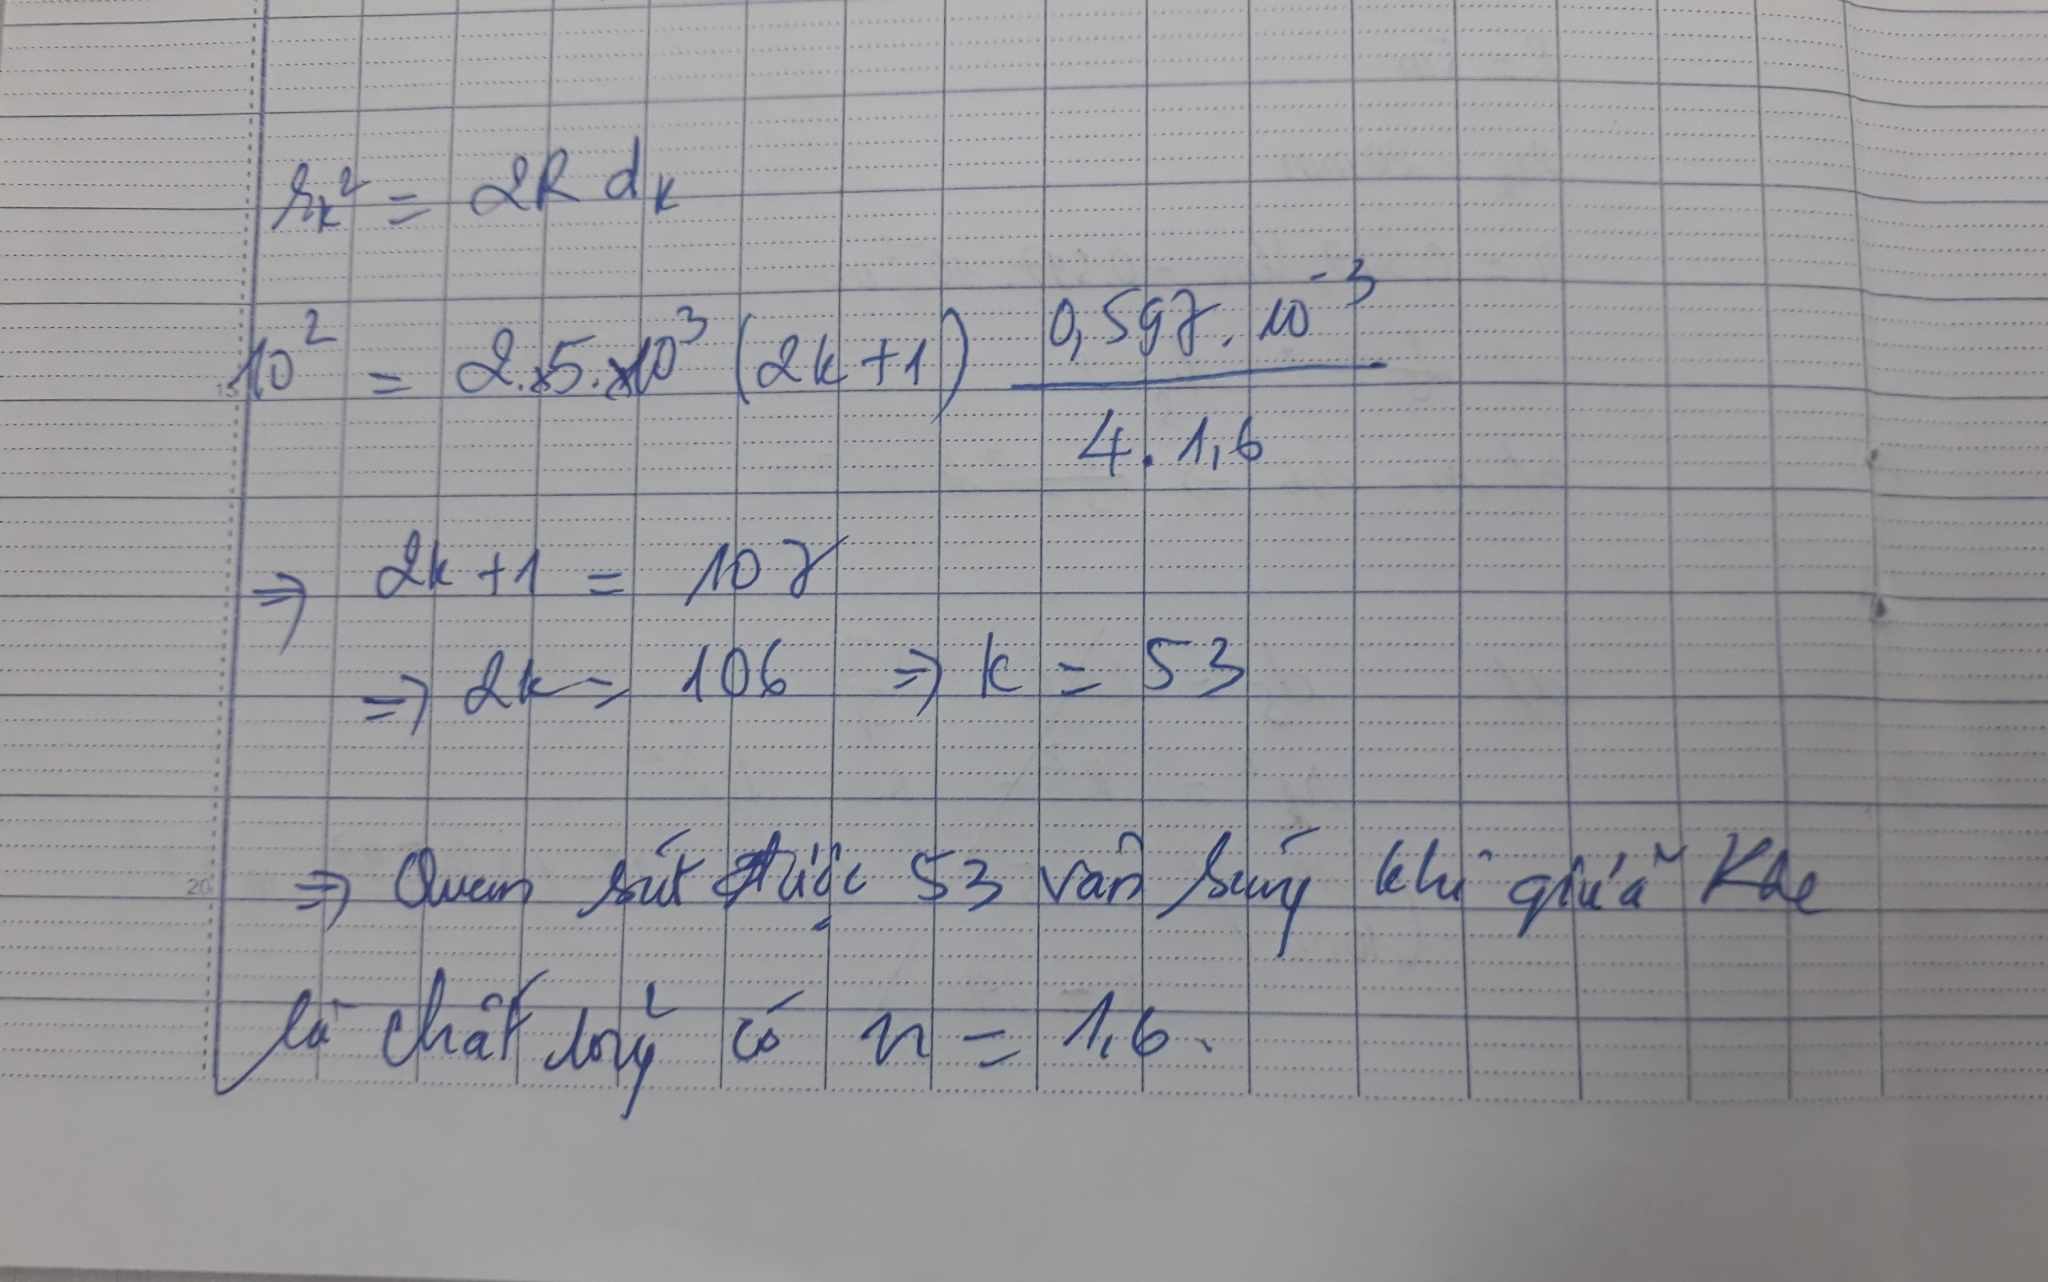 r_k² = 2R d_k
10² = 2.5.10³ (2k+1) 0,597.10⁻³ / 4.1,6
⇒ 2k+1 = 107
⇒ 2k = 106 ⇒ k = 53
20
⇒ Quan sát được 53 vân sáng khi giữa khe
là chất lỏng có n = 1,6.